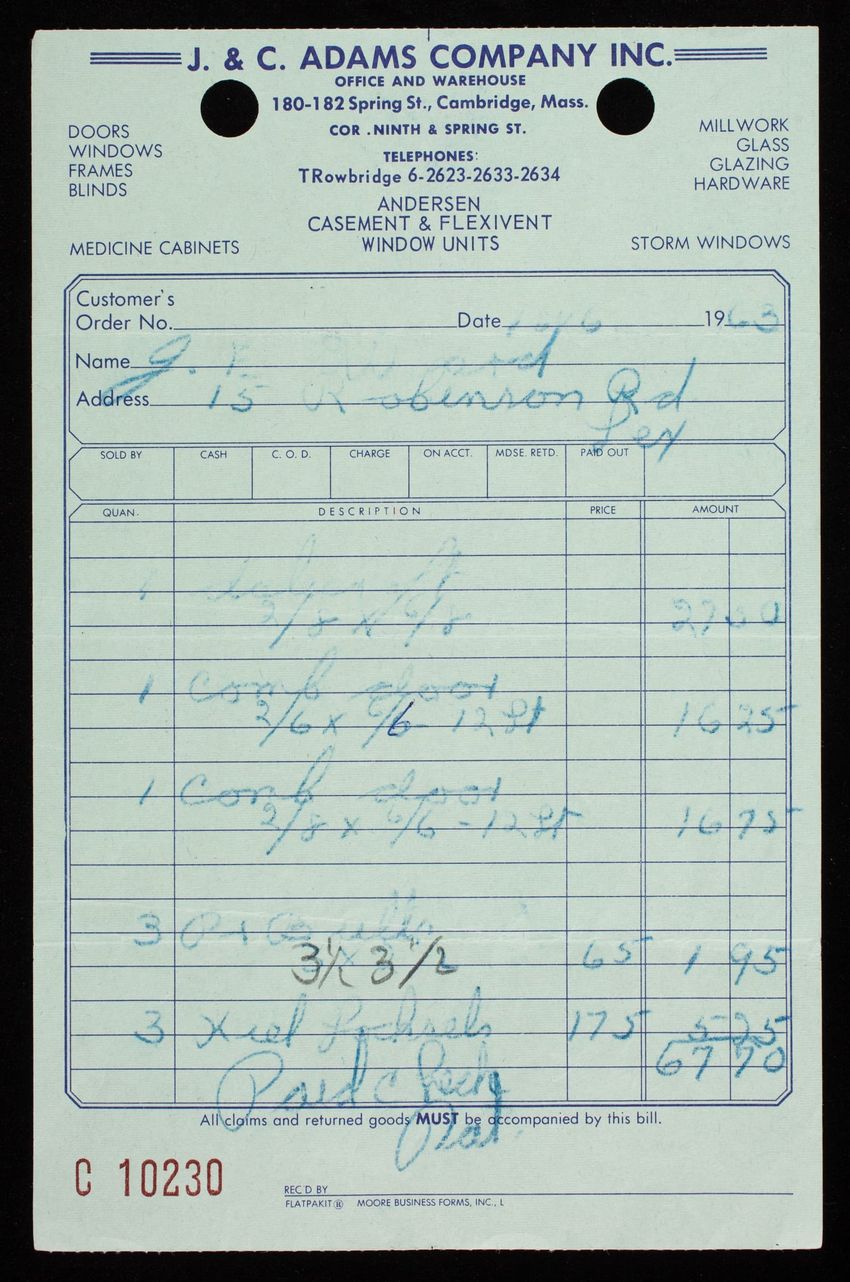 J. & C. ADAMS COMPANY INC.
OFFICE AND WAREHOUSE
180-182 Spring St., Cambridge, Mass.
COR . NINTH & SPRING ST.
TELEPHONES:
TRowbridge 6-2623-2633-2634
DOORS
WINDOWS
FRAMES
BLINDS
MILLWORK
GLASS
GLAZING
HARDWARE
ANDERSEN
CASEMENT & FLEXIVENT
WINDOW UNITS
MEDICINE CABINETS
STORM WINDOWS
Customer's
Order No. Date 1963
Name J. E
Address 15 Robinson Rd
Lex
SOLD BY CASH C. O. D. CHARGE ON ACCT. MDSE. RETD. PAID OUT
QUAN. DESCRIPTION PRICE AMOUNT
1
2/8 x 6/8
1 Comb door
2/6 x 6/6 - 12 Lt 16 25
1 Comb door
2/8 x 6/6 - 12 Lt 16 75
3 Pr Butts
3½ x 3 1/2 65 1 95
3 175 5 25
67 70
Paid Check
All claims and returned goods MUST be accompanied by this bill.
C 10230
REC'D BY
FLATPAKIT ® MOORE BUSINESS FORMS, INC., L